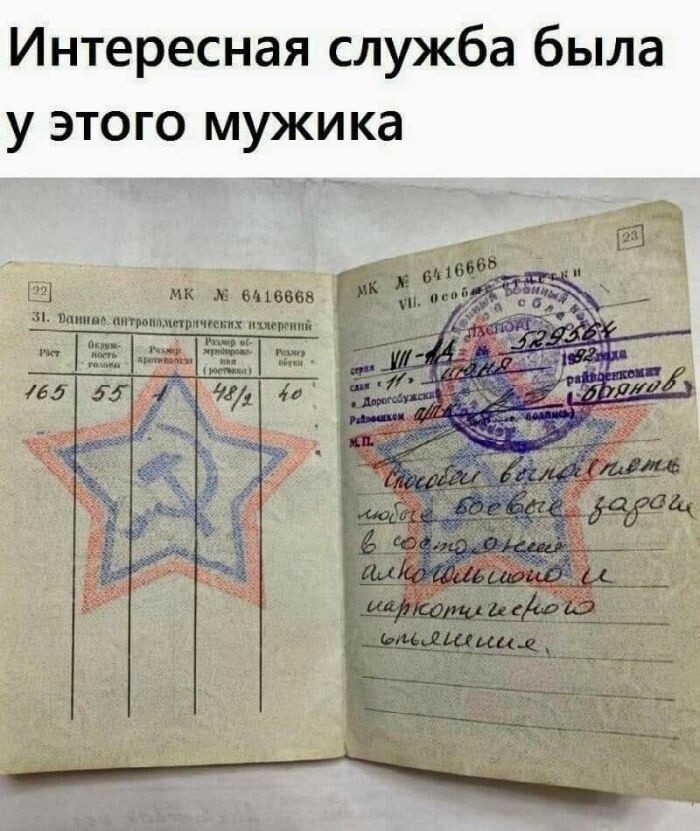 Интересная служба была
у этого мужика
22
МК № 6416668
31. Данные антропометрических измерений
Рост
Окруж-
ность
головы
Размер
противогаза
Размер об-
мундирова-
ния
(ростовка)
Размер
обуви
165
55
1
48/2
40
23
МК № 6416668
VII. Особые отметки
ПАСПОРТ
серия VII-ЛД № 529564
11 июня 1992 года
Дорогобужским
райвоенкомат
М.П.
Способен выполнять
любые боевые задачи
в состоянии
алкогольного и
наркотического
опьянения.